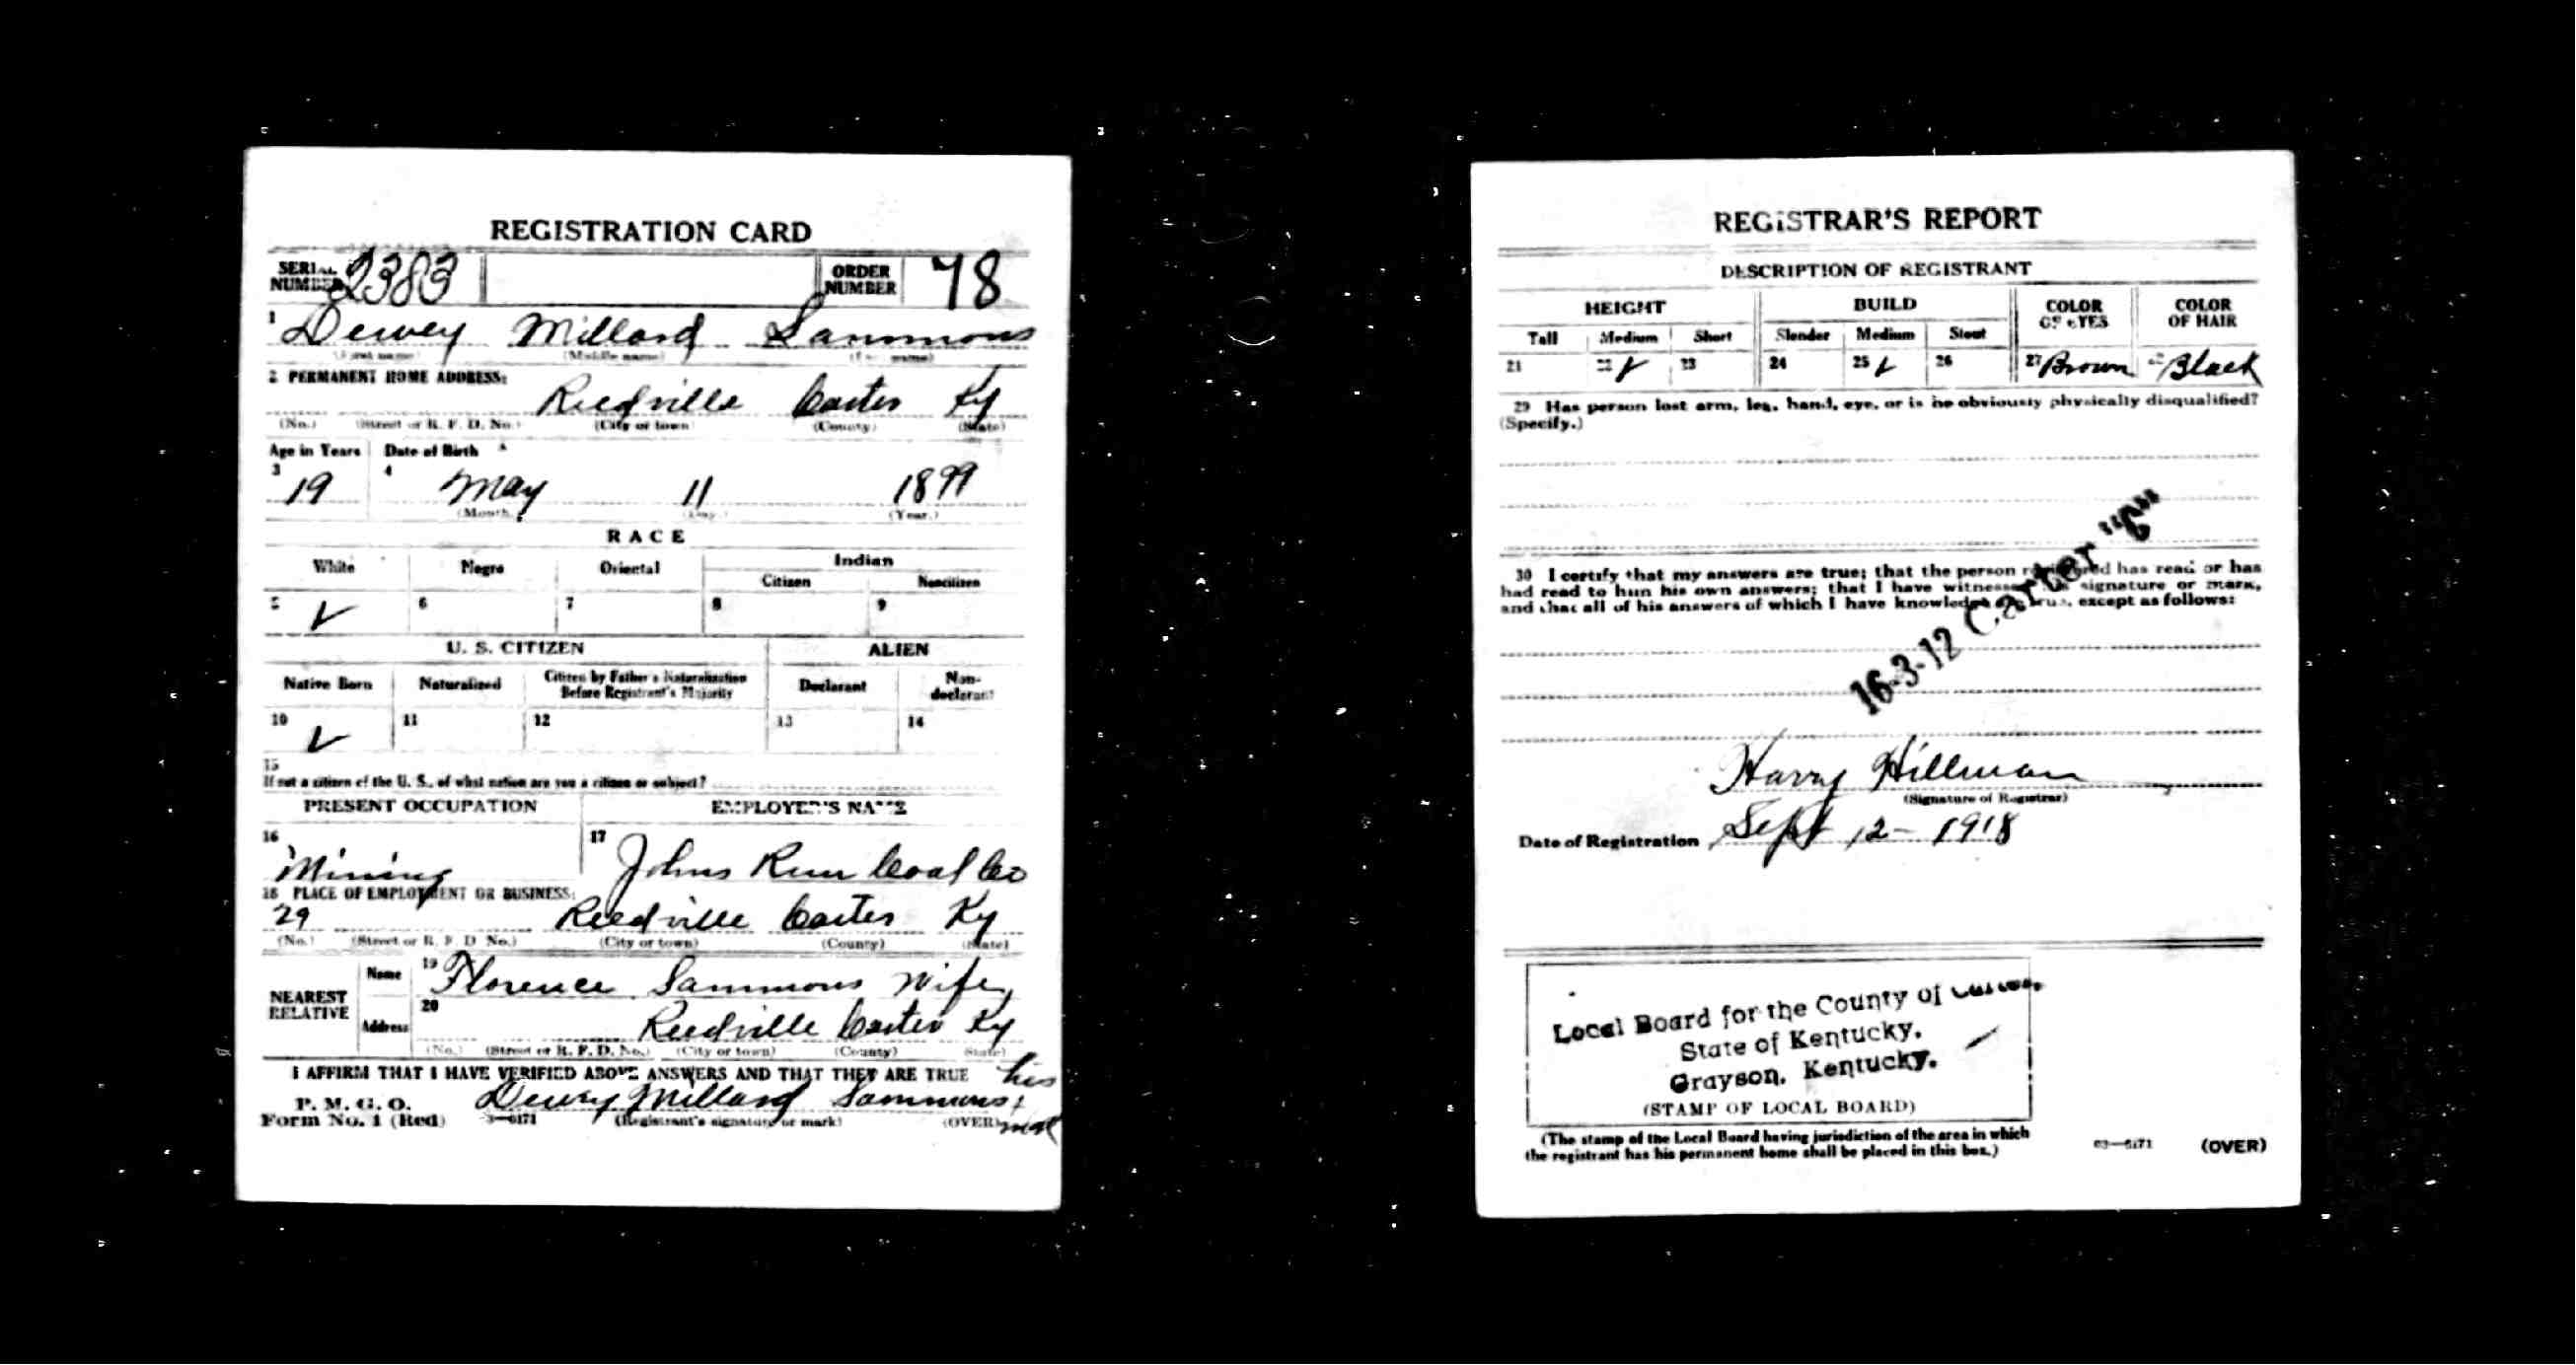 REGISTRATION CARD
SERIAL NUMBER 2383 ORDER NUMBER 78
1 Dewey Millard Sammons
(First name) (Middle name) (Last name)
2 PERMANENT HOME ADDRESS:
Reedville Carter Ky
(No.) (Street or R. F. D. No.) (City or town) (County) (State)
Age in Years Date of Birth
3 19 4 May 11 1899
(Month.) (Day.) (Year.)
RACE
White Negro Oriental Indian
Citizen Noncitizen
5 ✓ 6 7 8 9
U. S. CITIZEN ALIEN
Native Born Naturalized Citizen by Father's Naturalization Before Registrant's Majority Declarant Non-declarant
10 ✓ 11 12 13 14
15
If not a citizen of the U. S., of what nation are you a citizen or subject?
PRESENT OCCUPATION EMPLOYER'S NAME
16 Mining 17 Johns Run Coal Co
18 PLACE OF EMPLOYMENT OR BUSINESS:
29 Reedville Carter Ky
(No.) (Street or R. F. D. No.) (City or town) (County) (State)
NEAREST RELATIVE Name 19 Florence Sammons wife
Address 20 Reedville Carter Ky
(No.) (Street or R. F. D. No.) (City or town) (County) (State)
I AFFIRM THAT I HAVE VERIFIED ABOVE ANSWERS AND THAT THEY ARE TRUE his
P. M. G. O. Dewey Millard Sammons +
Form No. 1 (Red) 3—6171 (Registrant's signature or mark) (OVER)
REGISTRAR'S REPORT
DESCRIPTION OF REGISTRANT
HEIGHT BUILD COLOR OF EYES COLOR OF HAIR
Tall Medium Short Slender Medium Stout
21 22 ✓ 23 24 25 ✓ 26 27 Brown 28 Black
29 Has person lost arm, leg, hand, eye, or is he obviously physically disqualified?
(Specify.)
30 I certify that my answers are true; that the person registered has read or has
had read to him his own answers; that I have witnessed his signature or mark,
and that all of his answers of which I have knowledge are true, except as follows:
16-3-12 Carter "C"
Harry Hillman
(Signature of Registrar)
Date of Registration Sept 12 - 1918
Local Board for the County of Carter,
State of Kentucky.
Grayson, Kentucky.
(STAMP OF LOCAL BOARD)
(The stamp of the Local Board having jurisdiction of the area in which
the registrant has his permanent home shall be placed in this box.)
03—6171 (OVER)